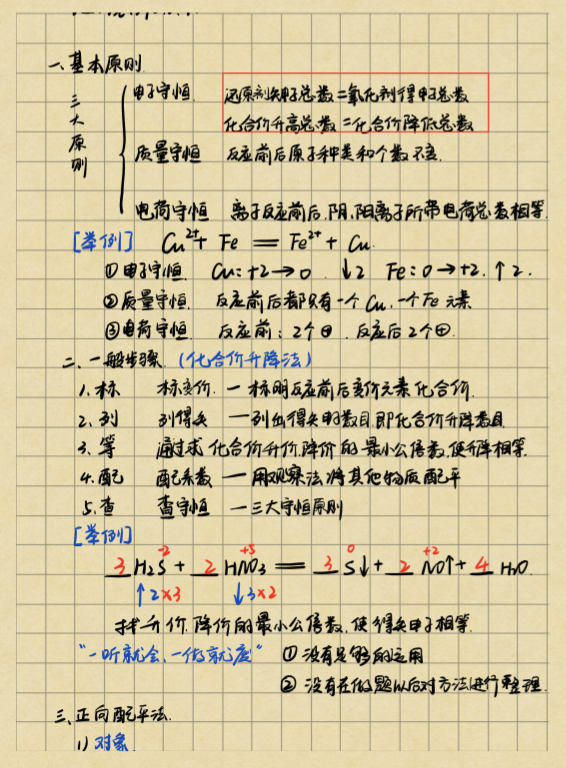 一、基本原则
三大原则
电子守恒 还原剂失电子总数=氧化剂得电子总数
化合价升高总数=化合价降低总数
质量守恒 反应前后原子种类和个数不变.
电荷守恒 离子反应前后,阴,阳离子所带电荷总数相等.
[举例] Cu²⁺+ Fe == Fe²⁺ + Cu.
①电子守恒. Cu: +2→0. ↓2 Fe: 0→+2. ↑2.
②质量守恒. 反应前后都只有一个Cu,一个Fe元素
③电荷守恒. 反应前: 2个⊕. 反应后2个⊕.
二、一般步骤. (化合价升降法)
1.标 标变价. — 标明反应前后变价元素化合价.
2.列 列得失 — 列出得失电子数目,即化合价升降数目
3.等 通过求化合价升价,降价的最小公倍数,使升降相等.
4.配 配系数 — 用观察法将其他物质配平
5.查 查守恒 — 三大守恒原则
[举例]
-2 +5 0 +2
3 H₂S + 2 HNO₃ == 3 S↓ + 2 NO↑ + 4 H₂O.
↑2×3 ↓3×2
找升价,降价的最小公倍数,使得失电子相等.
"一听就会,一做就废" ①没有足够的运用
②没有在做题以后对方法进行整理.
三、正向配平法.
1) 对象.